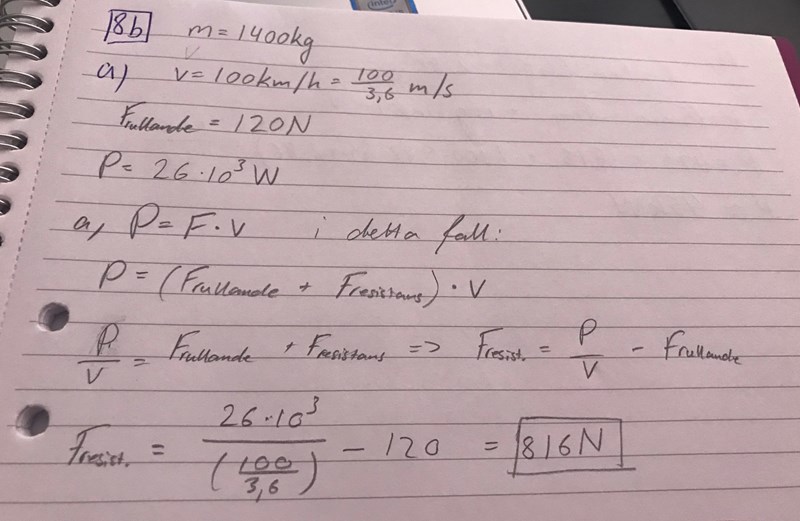 intel
8b m = 1400kg
a) v = 100km/h = 100/3,6 m/s
Frullande = 120N
P = 26·10³ W
a, P = F·V i detta fall:
P = (Frullande + Fresistans)·V
P/V = Frullande + Fresistans => Fresist. = P/V - Frullande
Fresist. = 26·10³/(100/3,6) - 120 = 816N